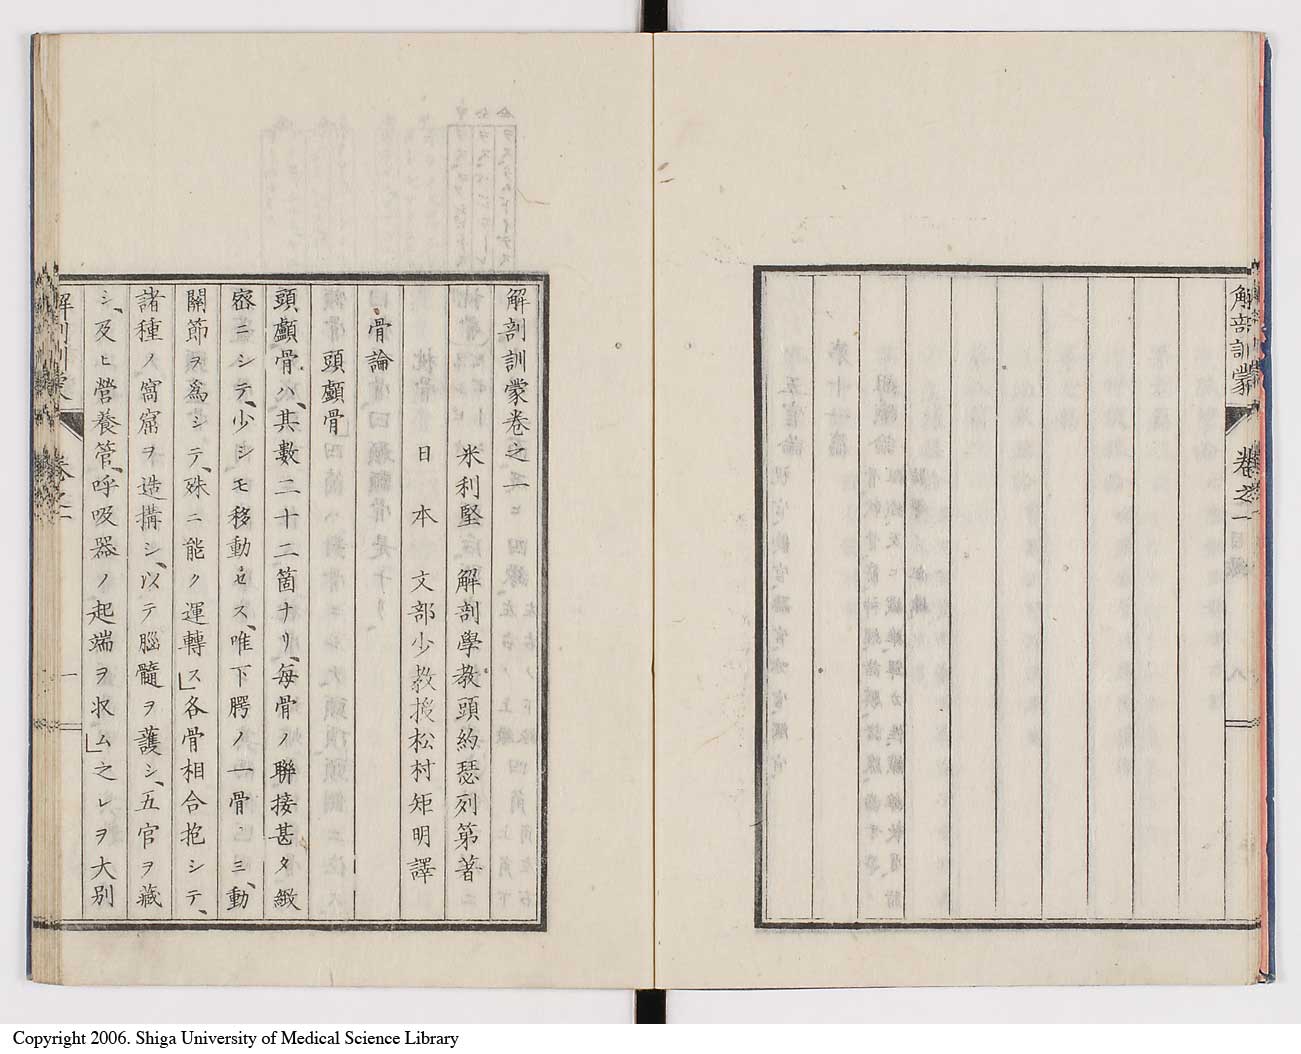 解剖訓蒙
卷之一
目錄
八
解剖訓蒙卷之一
米利堅 解剖學教頭約瑟列第著
日本 文部少教授松村矩明譯
骨論
頭顱骨
頭顱骨ハ、其數二十二箇ナリ、每骨ノ聯接甚タ緻
密ニシテ、少シモ移動セス、唯下腭ノ一骨ノミ、動
關節ヲ爲シテ、殊ニ能ク運轉ス」各骨相合抱シテ、
諸種ノ窩窟ヲ造搆シ、以テ腦髓ヲ護シ、五官ヲ藏
シ、及ヒ營養管、呼吸器ノ起端ヲ収ム」之レヲ大別
卷之一
一
Copyright 2006. Shiga University of Medical Science Library